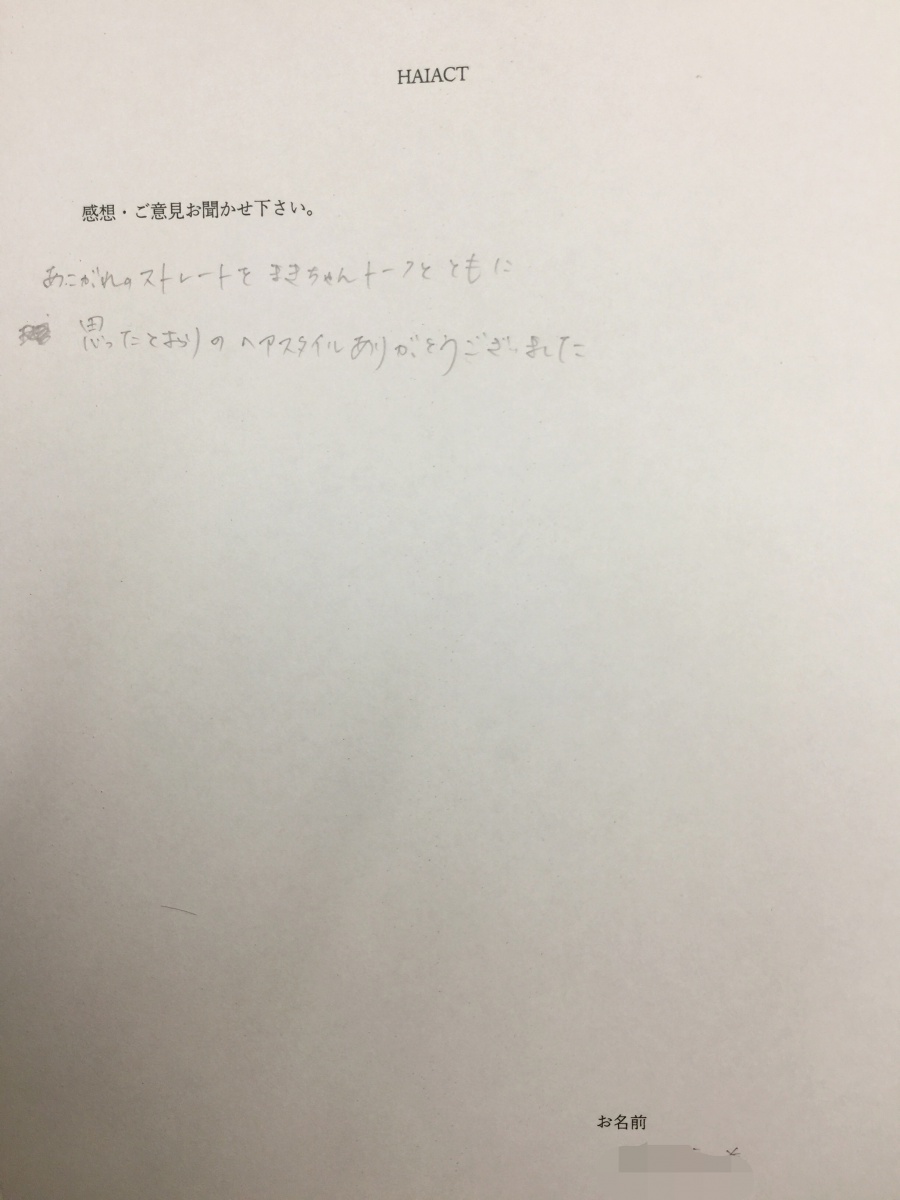 HAIACT
感想・ご意見お聞かせ下さい。
あこがれのストレートを まきちゃんトークと ともに
思ったとおりの ヘアスタイル ありがとうございました
お名前